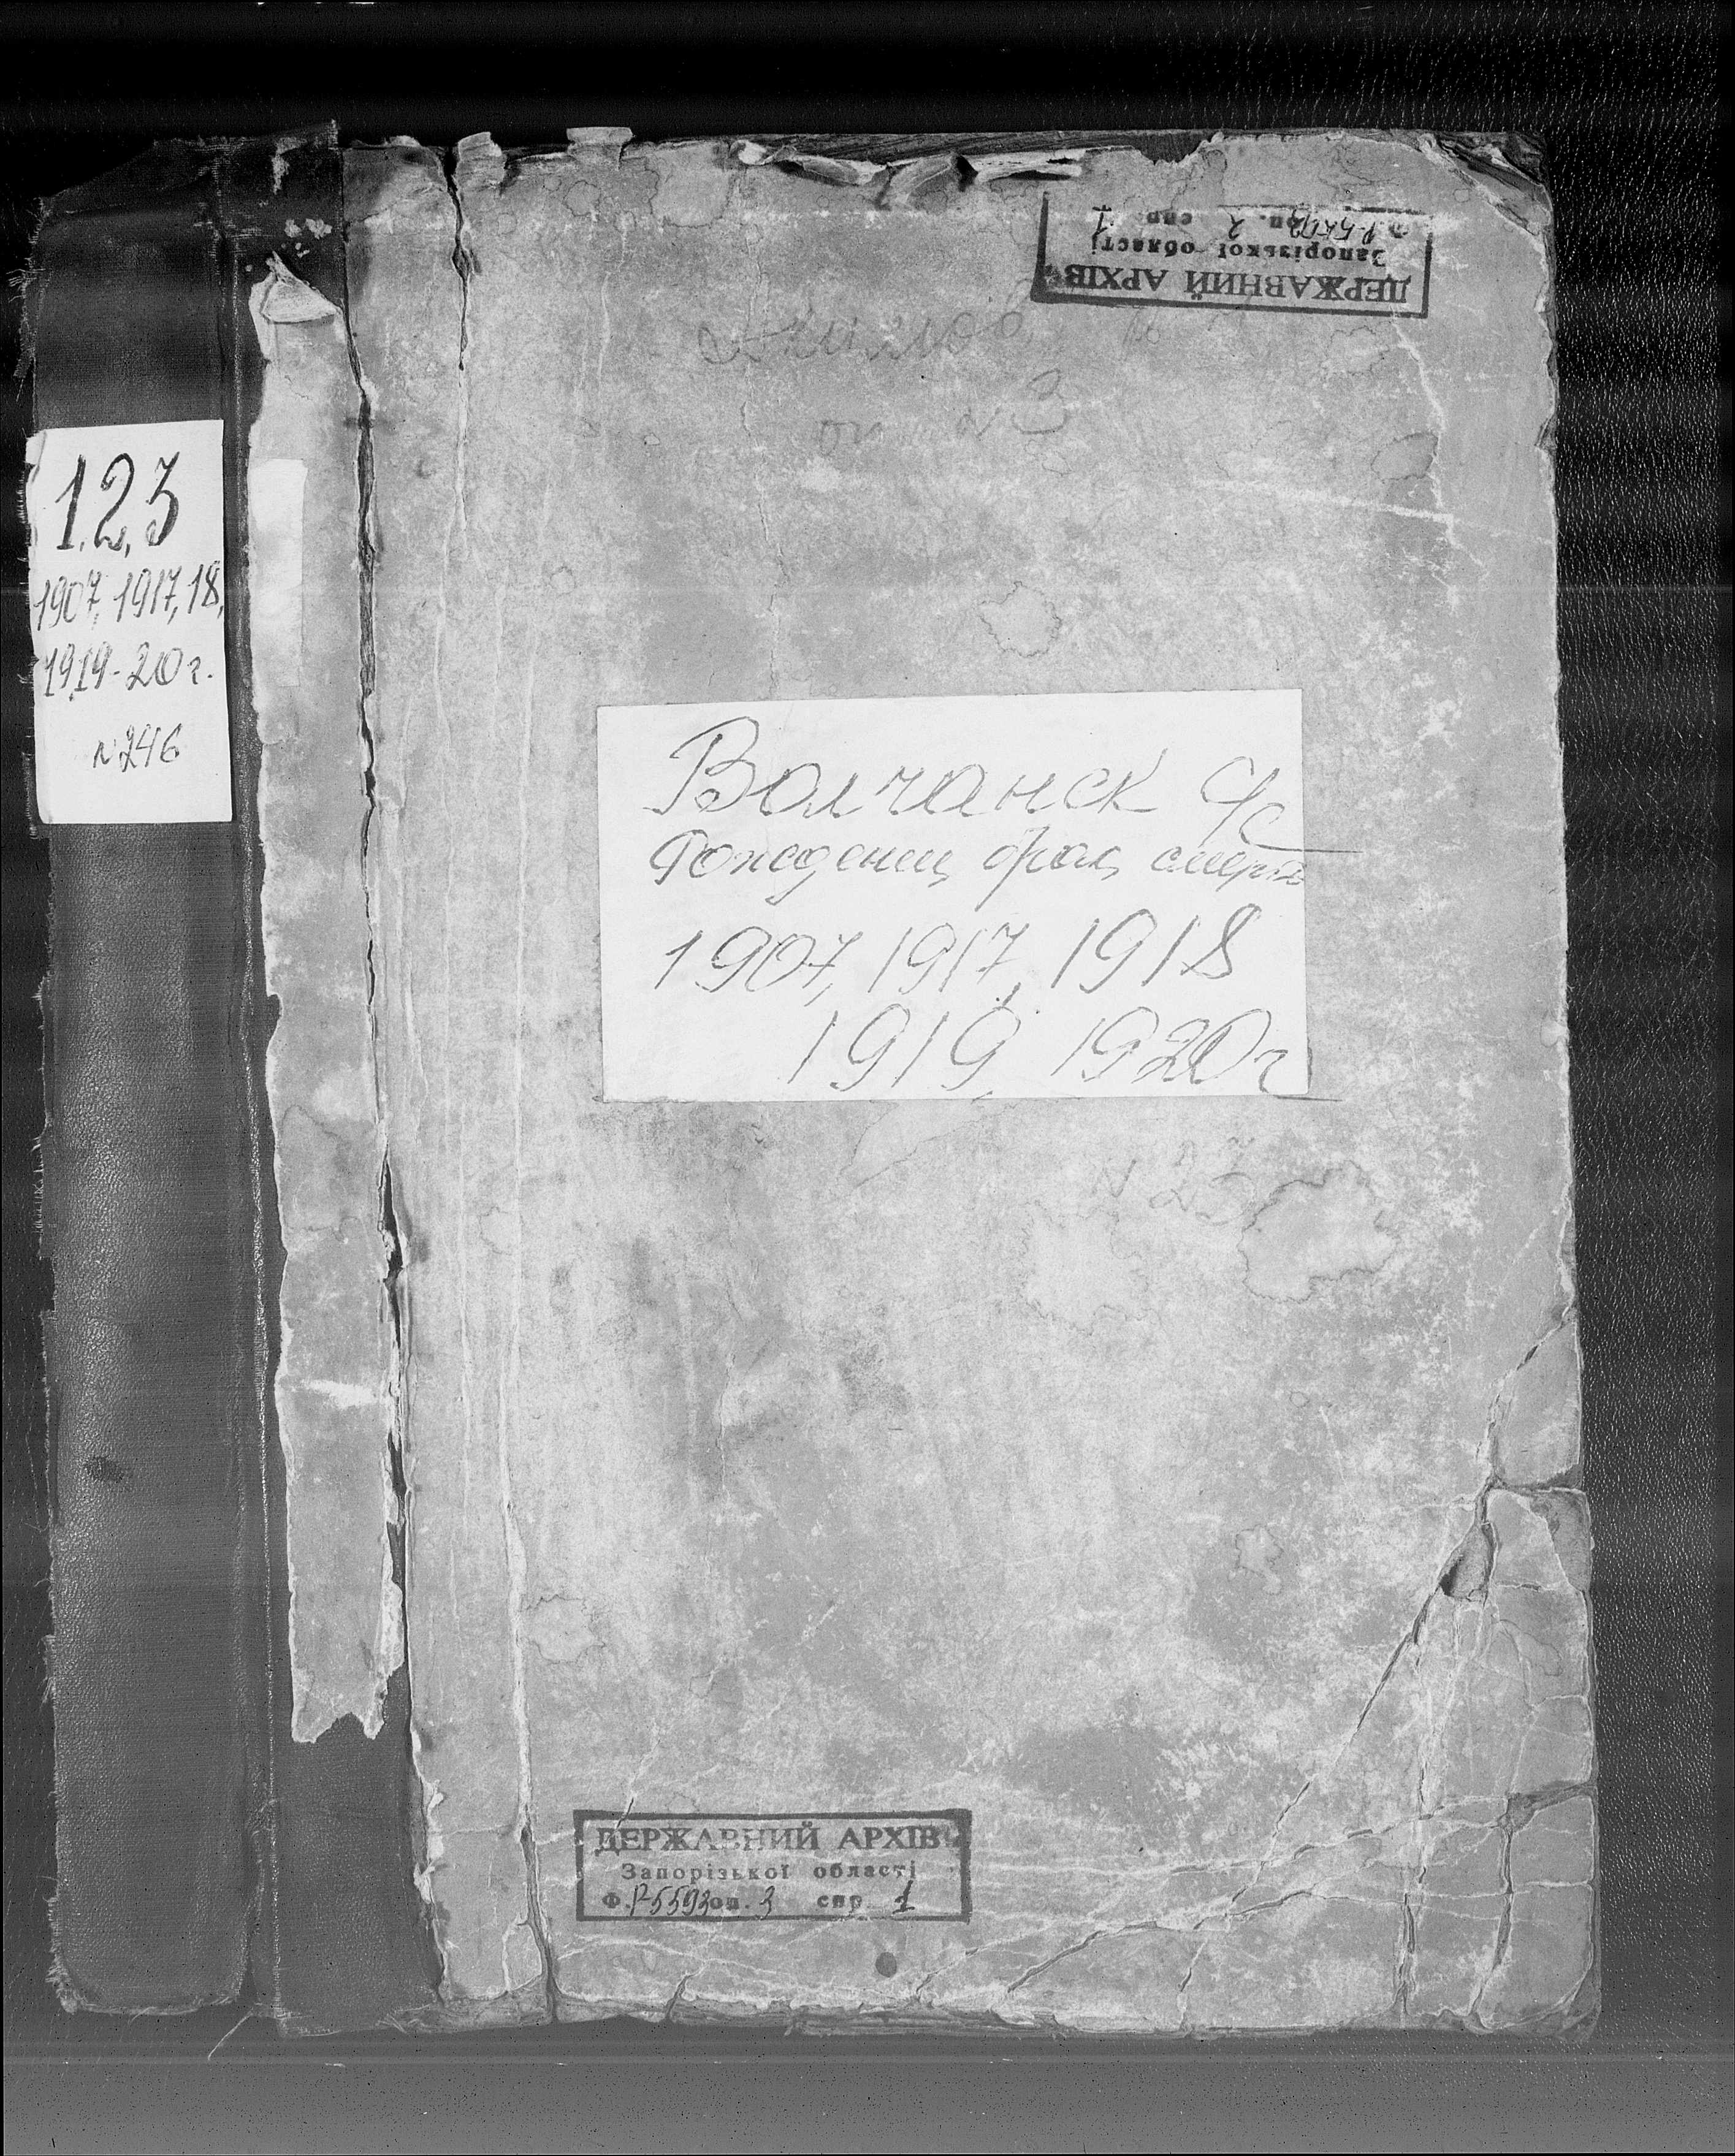 ДЕРЖАВНИЙ АРХІВ
Запорізької області
оп. 2 спр. 1
N 3
1,2,3
1907, 1917, 18,
1919-20г.
N246
Волчанск с/с
Рождении, брак, смерть
1907, 1917, 1918
1919, 1920г
N 23
ДЕРЖАВНИЙ АРХІВ
Запорізької області
Ф. Р-5593 оп. 3 спр. 1